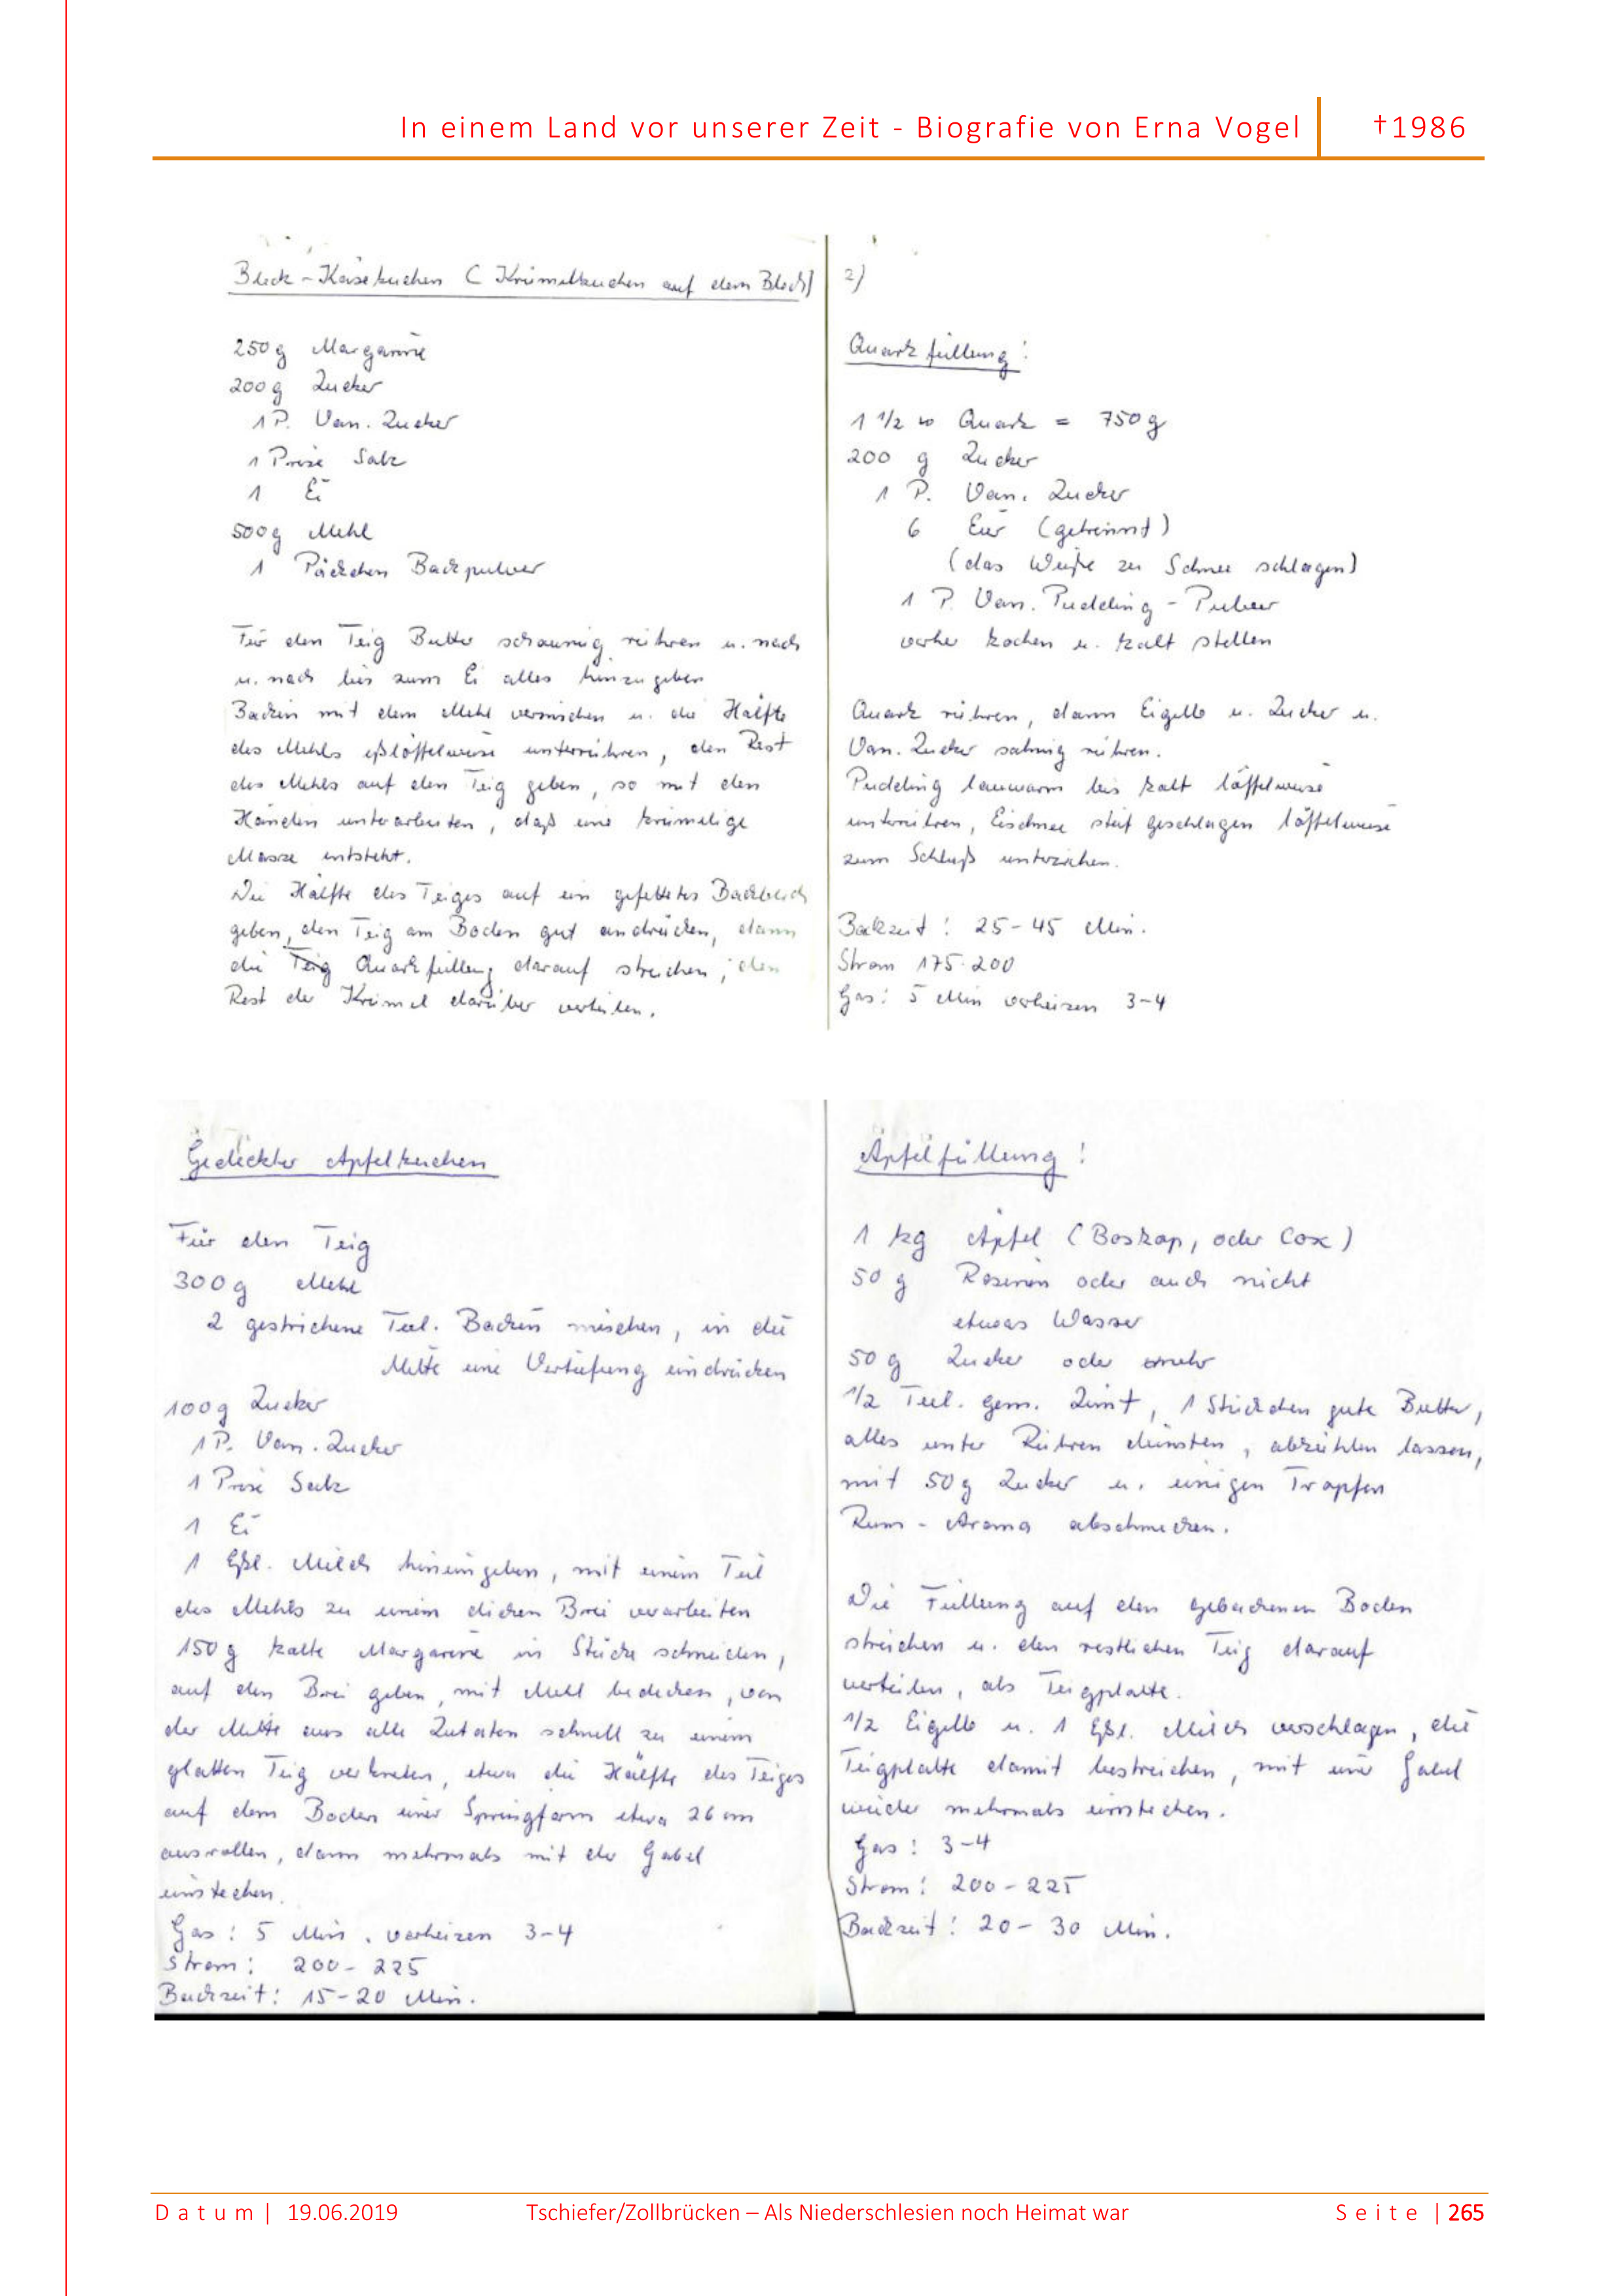 In einem Land vor unserer Zeit - Biografie von Erna Vogel
†1986
Blech-Käsekuchen (Krümelkuchen auf dem Blech)
250 g Margarine
200 g Zucker
1 P. Van. Zucker
1 Prise Salz
1 Ei
500 g Mehl
1 Päckchen Backpulver
Für den Teig Butter schaumig rühren u. nach
u. nach bis zum Ei alles hinzugeben
Backin mit dem Mehl vermischen u. die Hälfte
des Mehls eßlöffelweise unterrühren, den Rest
des Mehls auf den Teig geben, so mit den
Händen unterarbeiten, daß eine krümelige
Masse entsteht.
Die Hälfte des Teiges auf ein gefettetes Backblech
geben, den Teig am Boden gut andrücken, dann
die Teig Quarkfüllung darauf streichen, den
Rest der Krümel darüber verteilen.
2)
Quarkfüllung:
1 1/2 Quark = 750 g
200 g Zucker
1 P. Van. Zucker
6 Eier (getrennt)
(das Weiße zu Schnee schlagen)
1 P. Van. Pudding-Pulver
vorher kochen u. kalt stellen
Quark rühren, dann Eigelb u. Zucker u.
Van. Zucker sahnig rühren.
Pudding lauwarm bis kalt löffelweise
unterrühren, Eischnee steif geschlagen löffelweise
zum Schluß unterziehen.
Backzeit: 25-45 Min.
Strom 175-200
Gas: 5 Min vorheizen 3-4
Gedeckter Apfelkuchen
Für den Teig
300 g Mehl
2 gestrichene Teel. Backin mischen, in die
Mitte eine Vertiefung eindrücken
100 g Zucker
1 P. Van. Zucker
1 Prise Salz
1 Ei
1 Eßl. Milch hineingeben, mit einem Teil
des Mehls zu einem dicken Brei verarbeiten
150 g kalte Margarine in Stücke schneiden,
auf den Brei geben, mit Mehl bedecken, von
der Mitte aus alle Zutaten schnell zu einem
glatten Teig verkneten, etwa die Hälfte des Teiges
auf dem Boden einer Springform etwa 26 cm
ausrollen, dann mehrmals mit der Gabel
einstechen.
Gas: 5 Min. vorheizen 3-4
Strom: 200-225
Backzeit: 15-20 Min.
Apfelfüllung!
1 kg Äpfel (Boskop, oder Cox)
50 g Rosinen oder auch nicht
etwas Wasser
50 g Zucker oder mehr
1/2 Teel. gem. Zimt, 1 Stückchen gute Butter,
alles unter Rühren dünsten, abkühlen lassen,
mit 50 g Zucker u. einigen Tropfen
Rum-Aroma abschmecken.
Die Füllung auf den gebackenen Boden
streichen u. den restlichen Teig darauf
verteilen, als Teigplatte.
1/2 Eigelb u. 1 Eßl. Milch verschlagen, die
Teigplatte damit bestreichen, mit einer Gabel
wieder mehrmals einstechen.
Gas: 3-4
Strom: 200-225
Backzeit: 20-30 Min.
Datum | 19.06.2019
Tschiefer/Zollbrücken – Als Niederschlesien noch Heimat war
Seite | 265